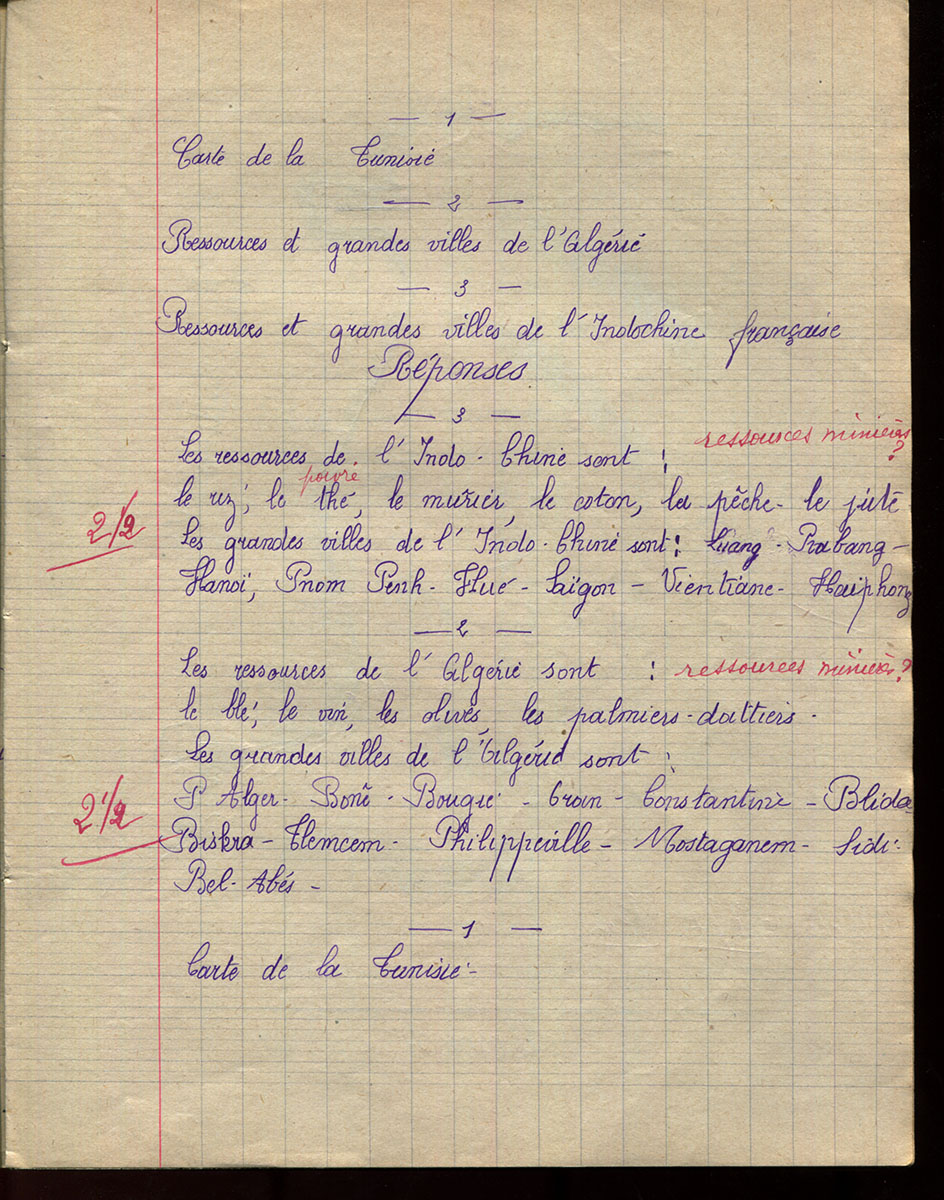 — 1 —
Carte de la Tunisie
— 2 —
Ressources et grandes villes de l'Algérie
— 3 —
Ressources et grandes villes de l'Indochine française
Réponses
— 3 —
ressources minières ?
Les ressources de l'Indo-Chine sont :
poivre
le riz, le thé, le murier, le coton, la pêche - le jute
2/2
Les grandes villes de l'Indo-Chine sont : Luang-Prabang -
Hanoï, Pnom Penh - Hué - Saïgon - Vientiane - Haïphong
— 2 —
Les ressources de l'Algérie sont : ressources minières ?
le blé, le vin, les olives, les palmiers-dattiers.
Les grandes villes de l'Algérie sont :
2 1/2
P Alger - Bône - Bougie - Oran - Constantine - Blida
Biskra - Tlemcem - Philippeville - Mostaganem - Sidi-
Bel-Abés -
— 1 —
Carte de la Tunisie -